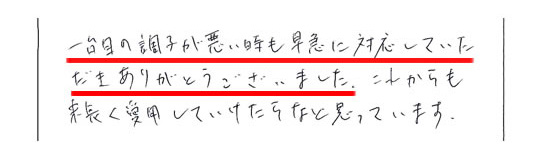 一台目の調子が悪い時も早急に対応していた
だきありがとうございました。これからも
末長く愛用していけたらなと思っています.